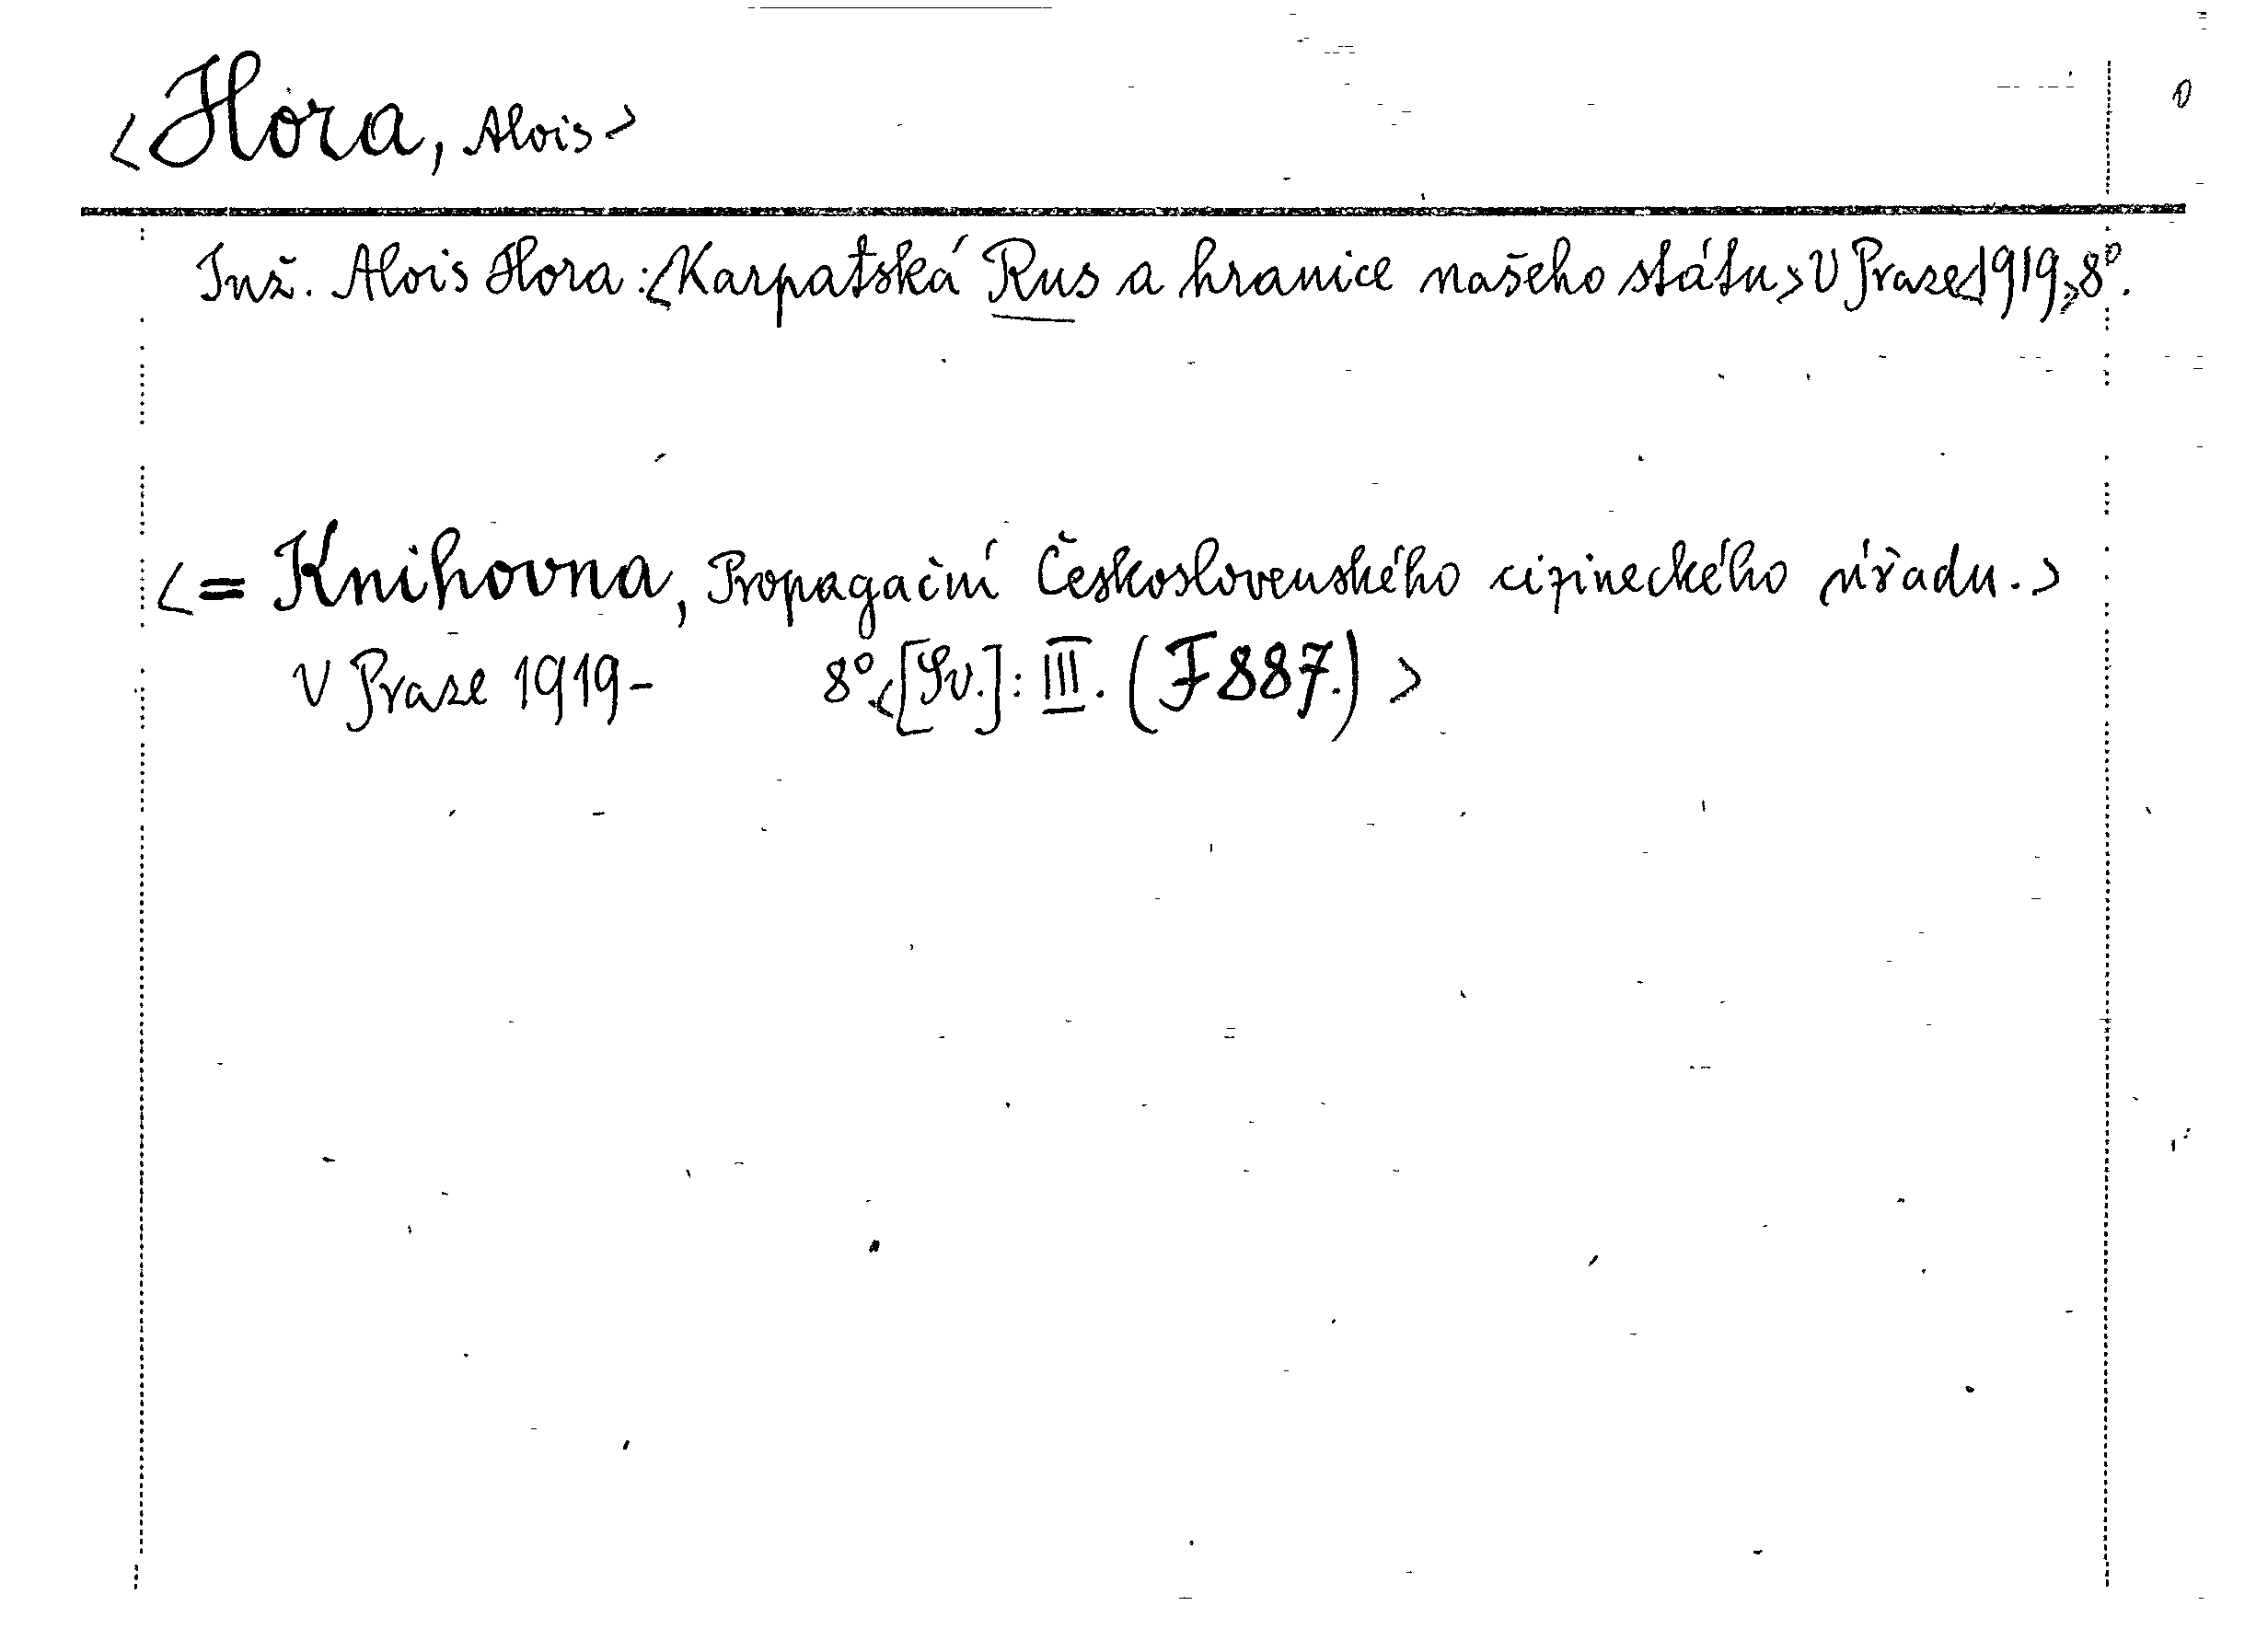 <Hora, Alois>
Inž. Alois Hora: <Karpatská Rus a hranice našeho státu> V Praze <1919,> 8°.
<= Knihovna, Propagační Československého cizineckého úřadu.>
V Praze 1919- 8° <[Sv.]: III. (F 887.) >